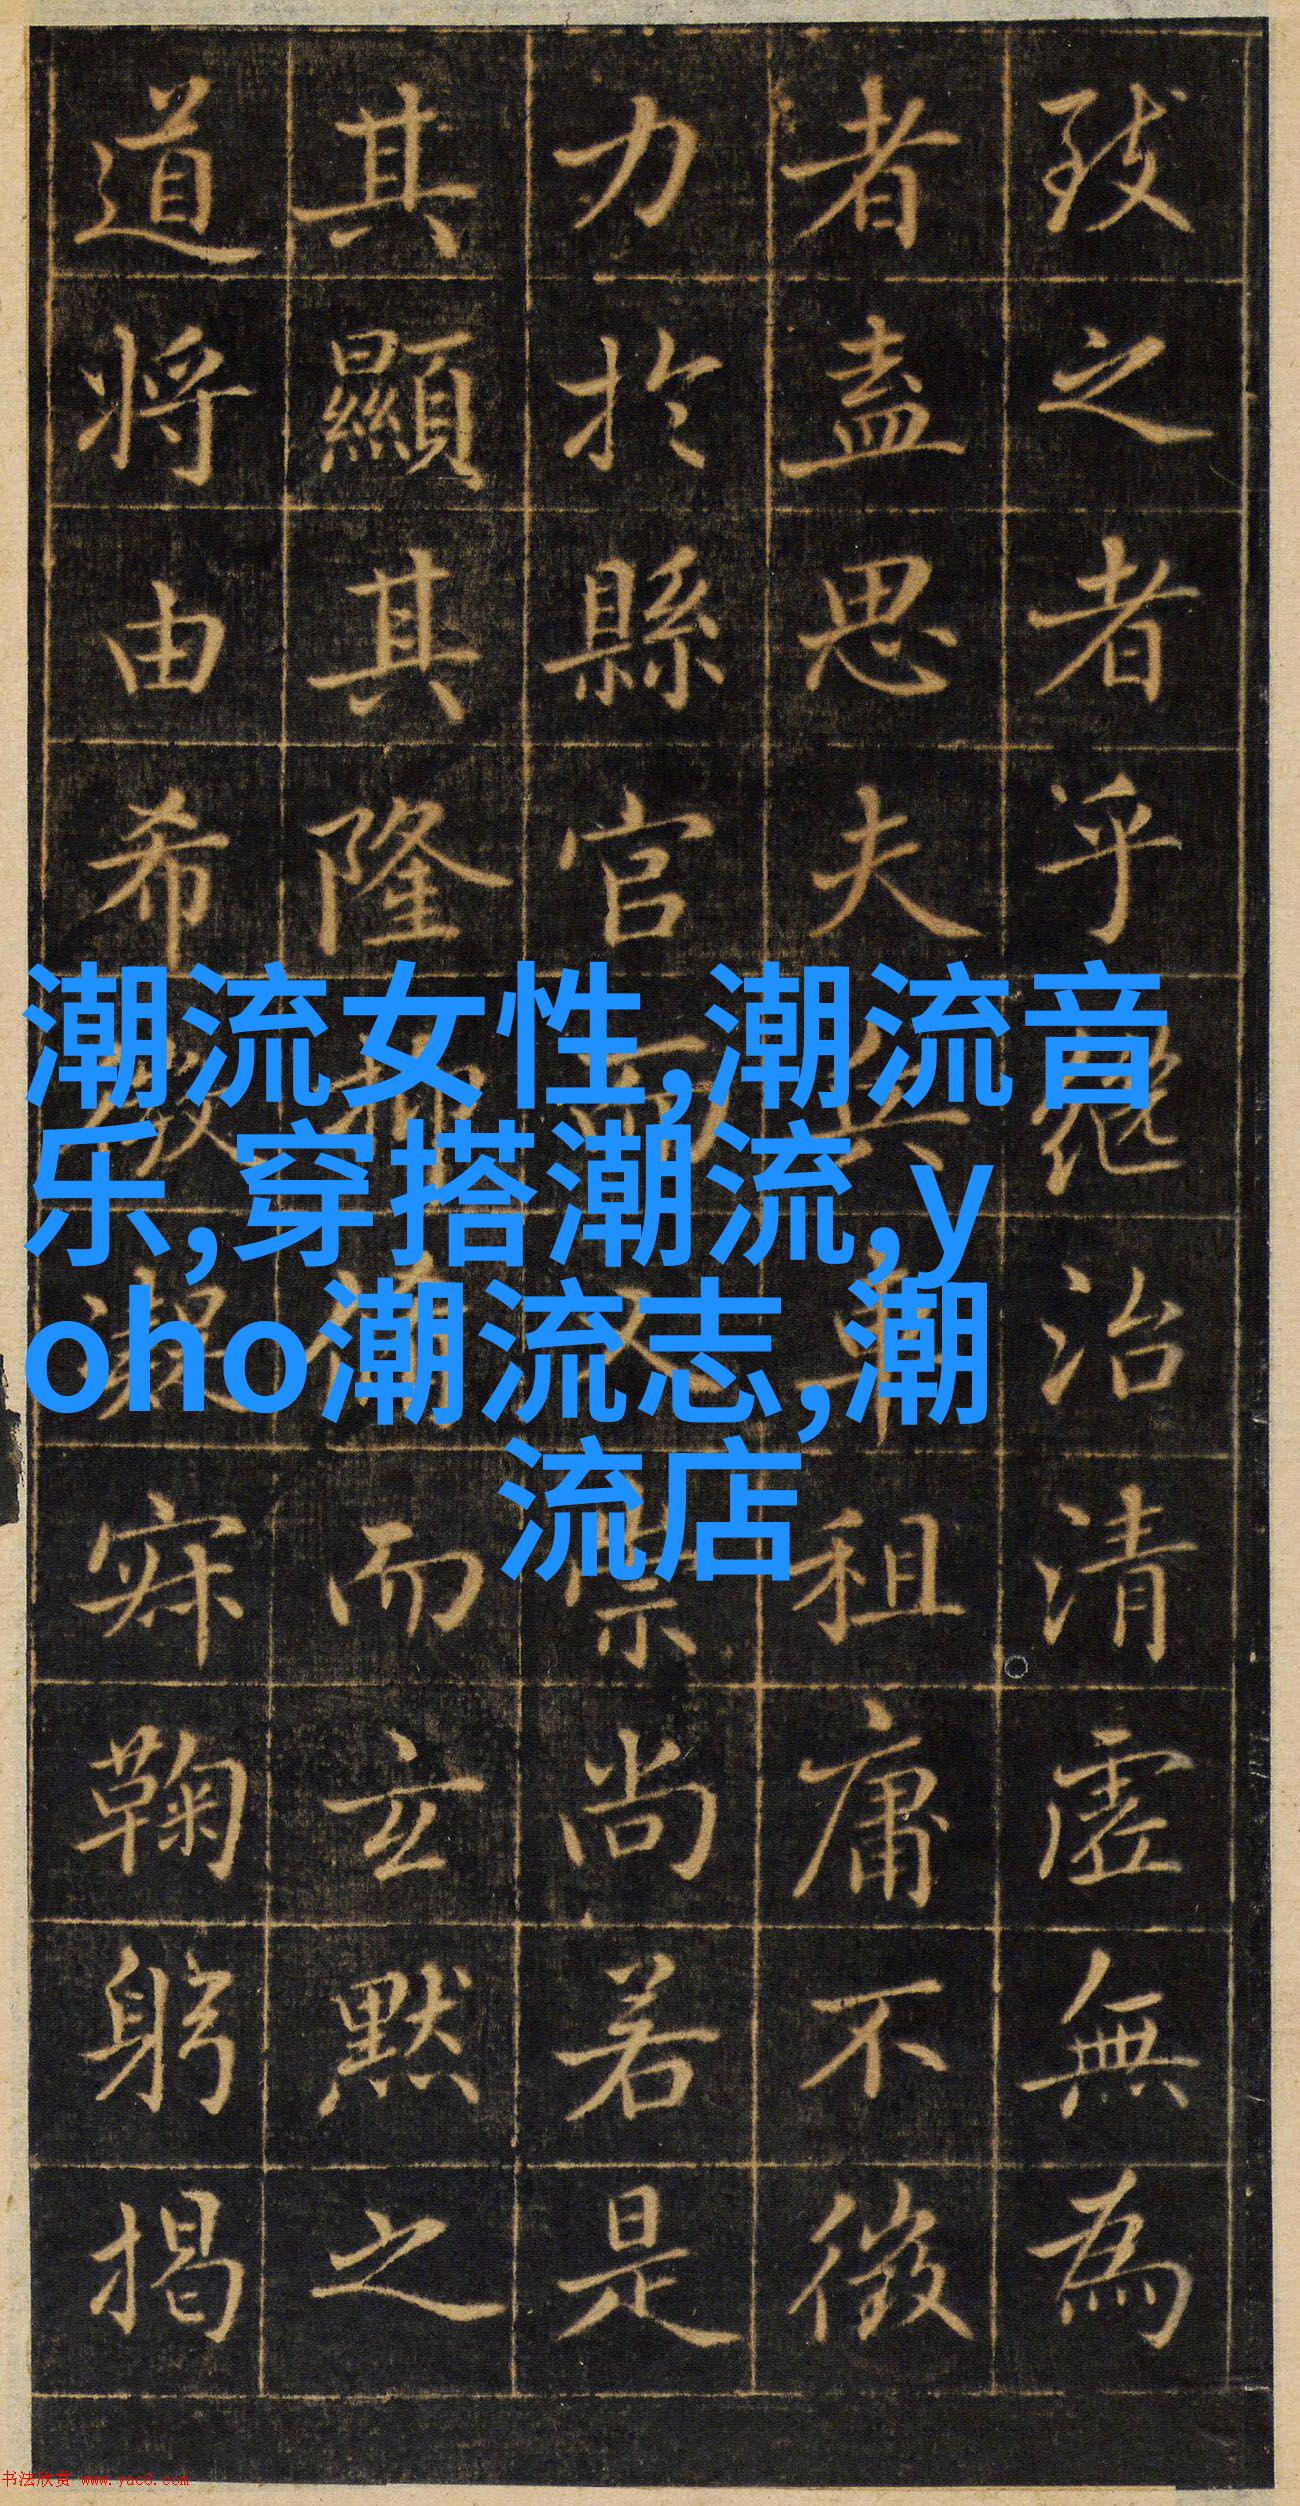 致之者乎治清虛無為
者盡思夫租庸不徵
力於縣官崇尚若是
其顯其隆而玄默之
道將由希凝寂鞠躬揭
潮流女性,潮流音
乐,穿搭潮流,y
oho潮流志,潮
流店
书法欣赏 www.yac8.com